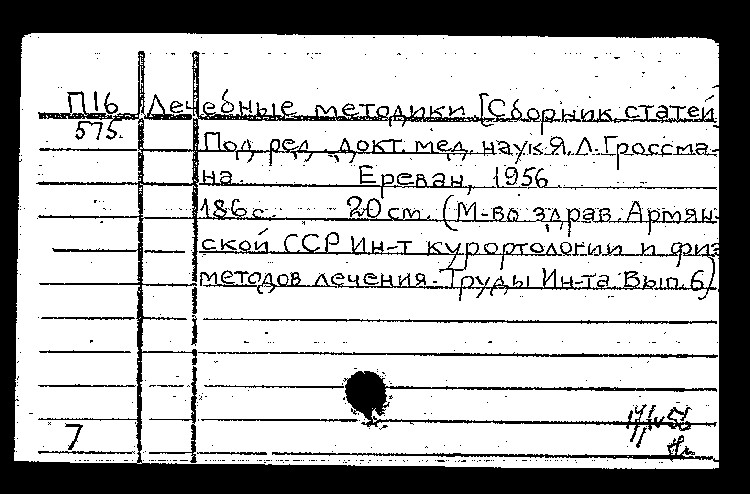 П16 Лечебные методики [Сборник статей
575. Под ред. докт. мед. наук Я. Л. Гроссма-
на. Ереван, 1956
186 с. 20 см. (М-во здрав. Армян-
ской ССР Ин-т курортологии и физ
методов лечения. Труды Ин-та. Вып. 6)
7